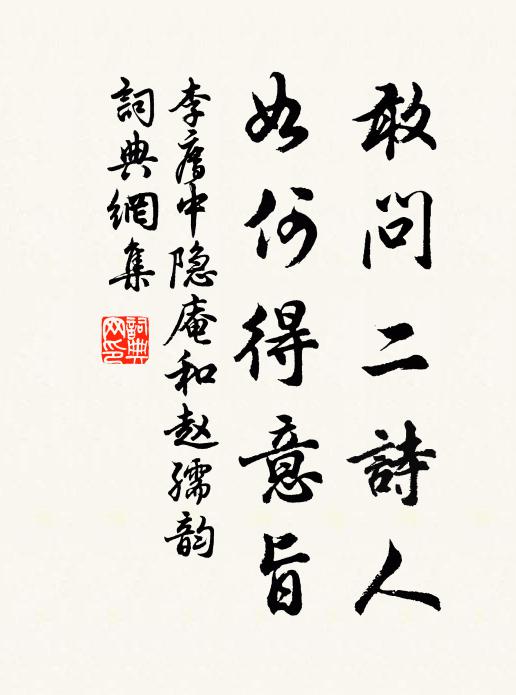 敢問二詩人
如何得意旨
李㢊中隐庵和赵孺韵
詞典網集
詞典網印